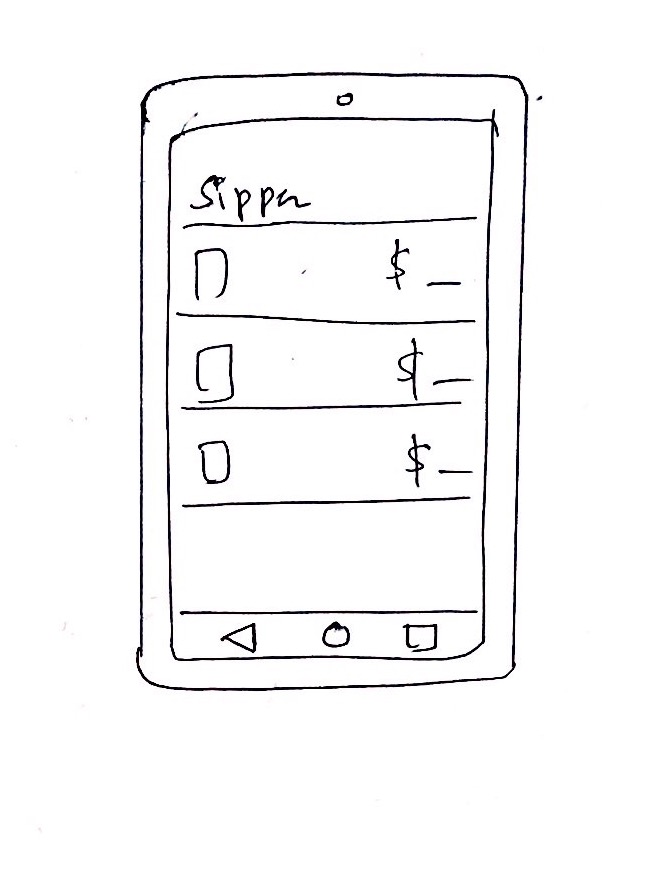 Sipper
$ _
$ _
$ _